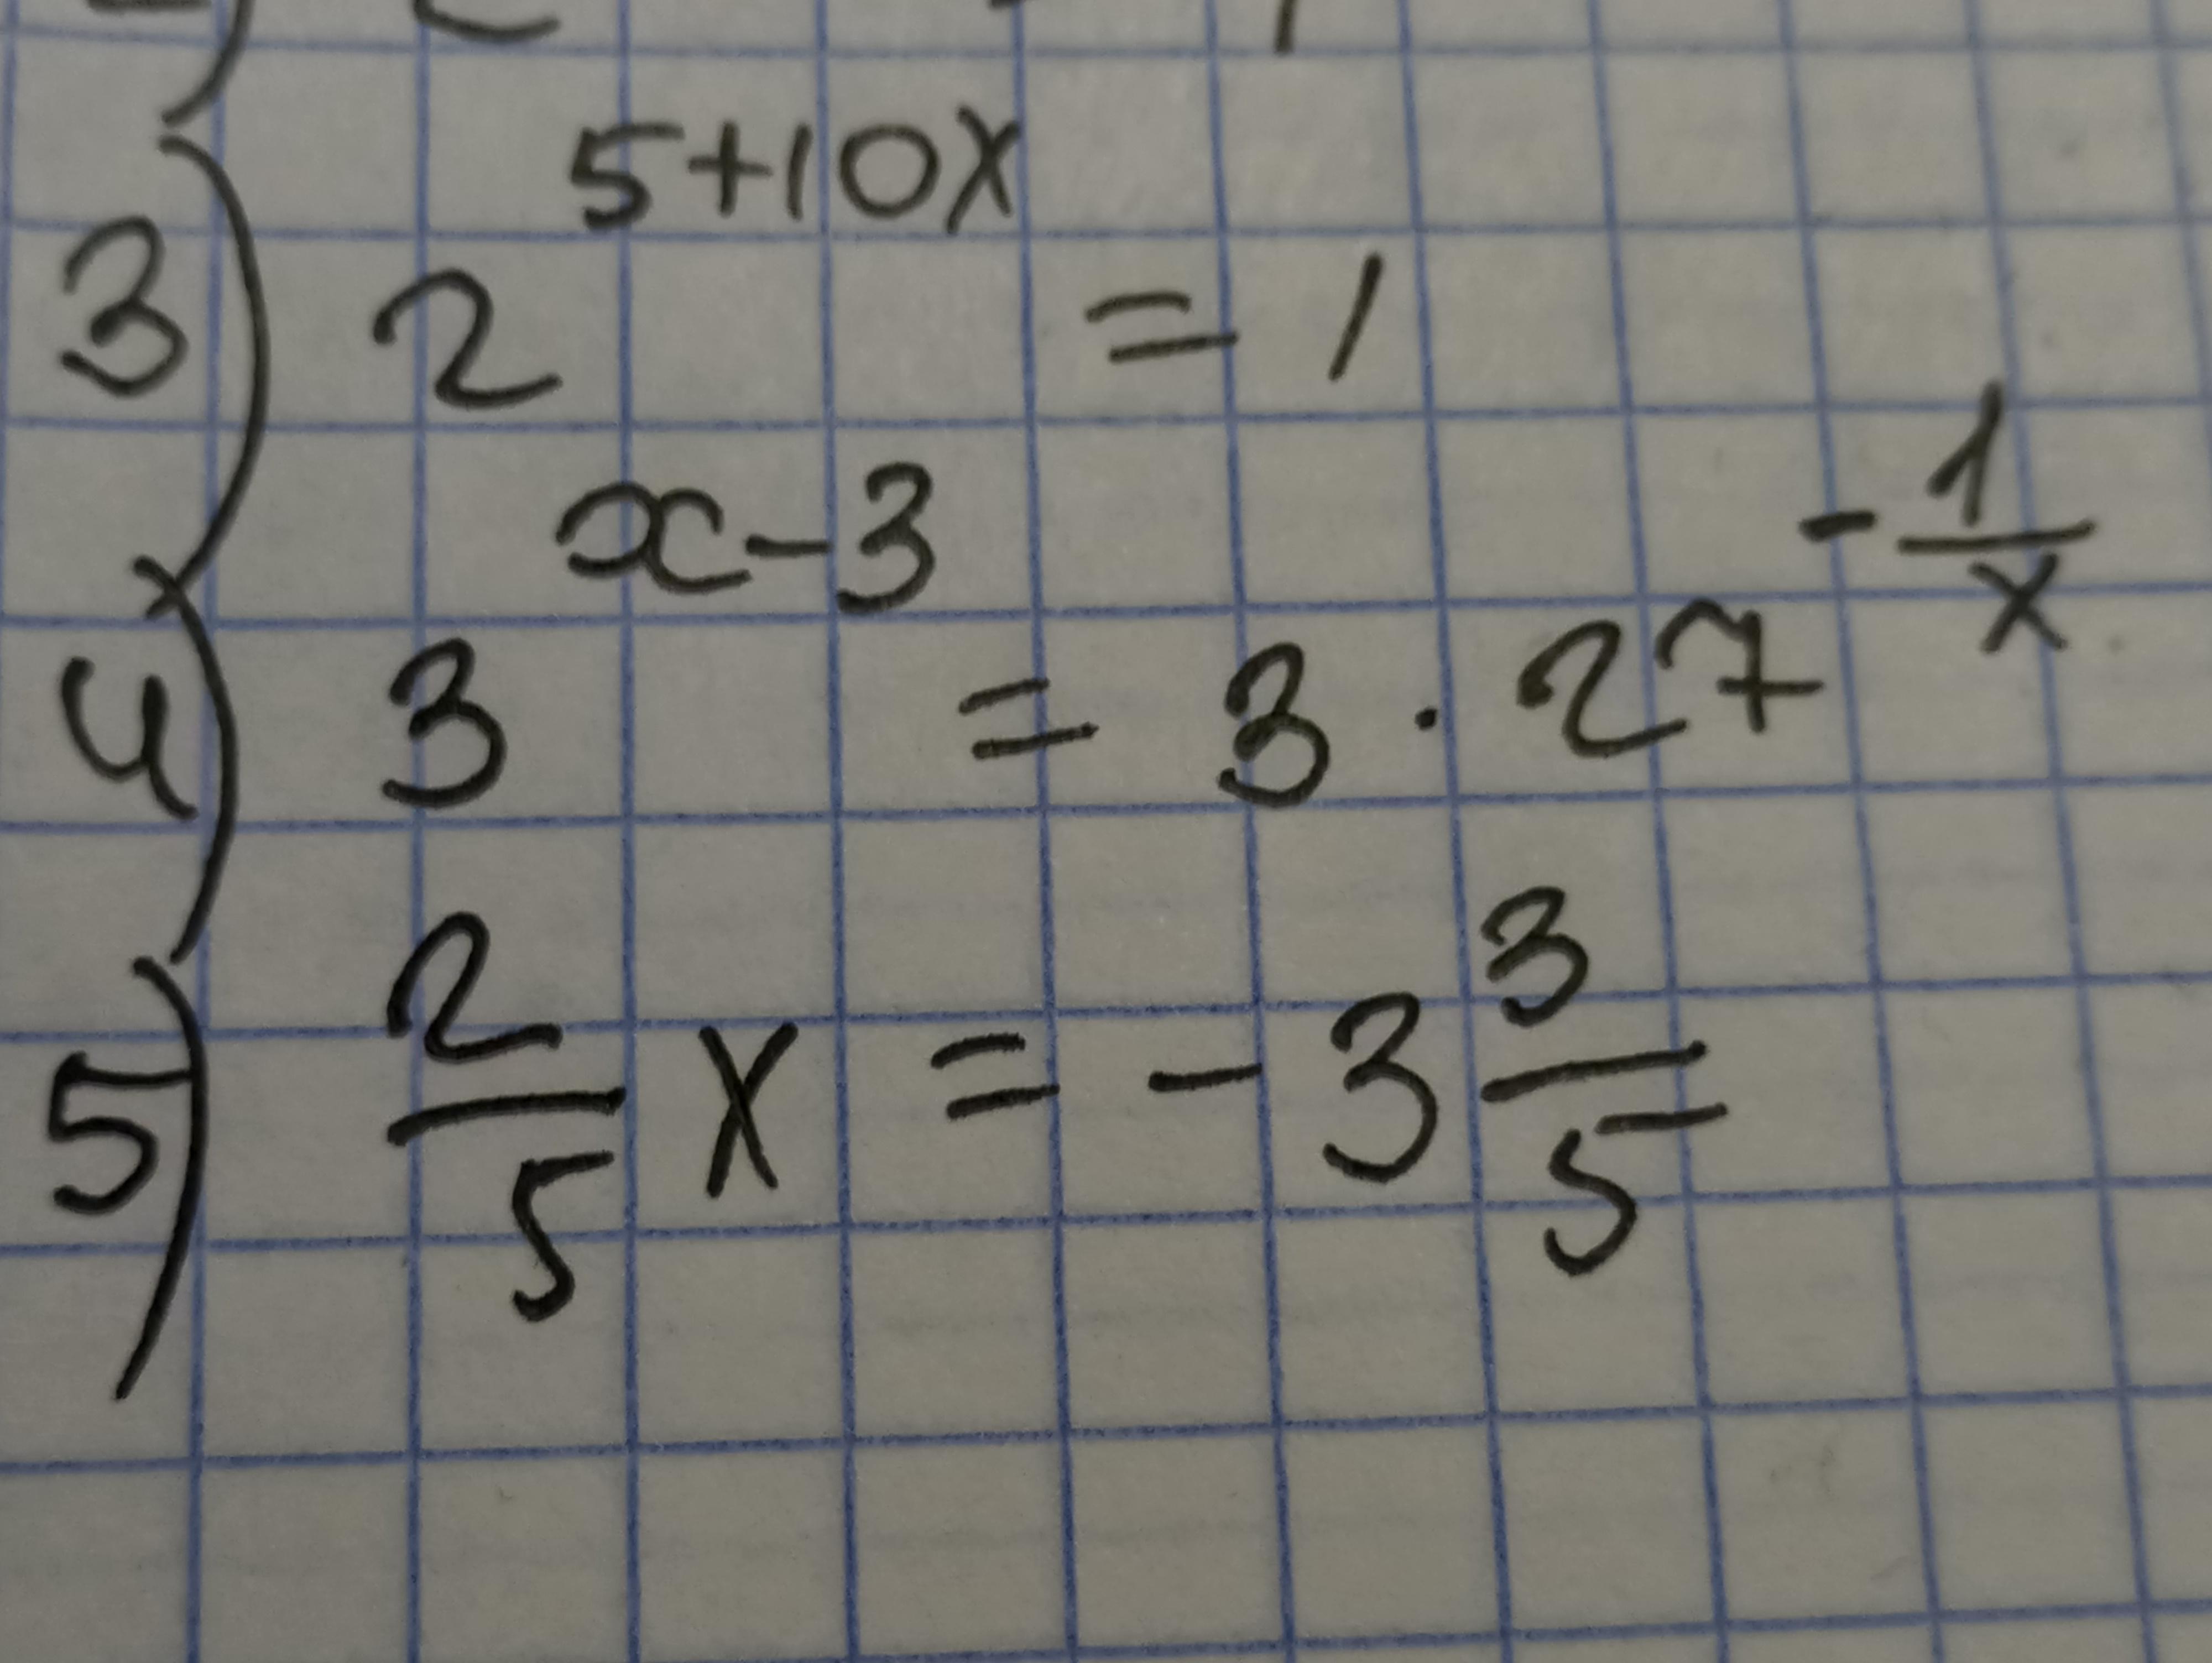 3) 2^{5+10x} = 1
4) 3^{x-3} = 3 · 27^{-\frac{1}{x}}
5) \frac{2}{5} x = -3\frac{3}{5}